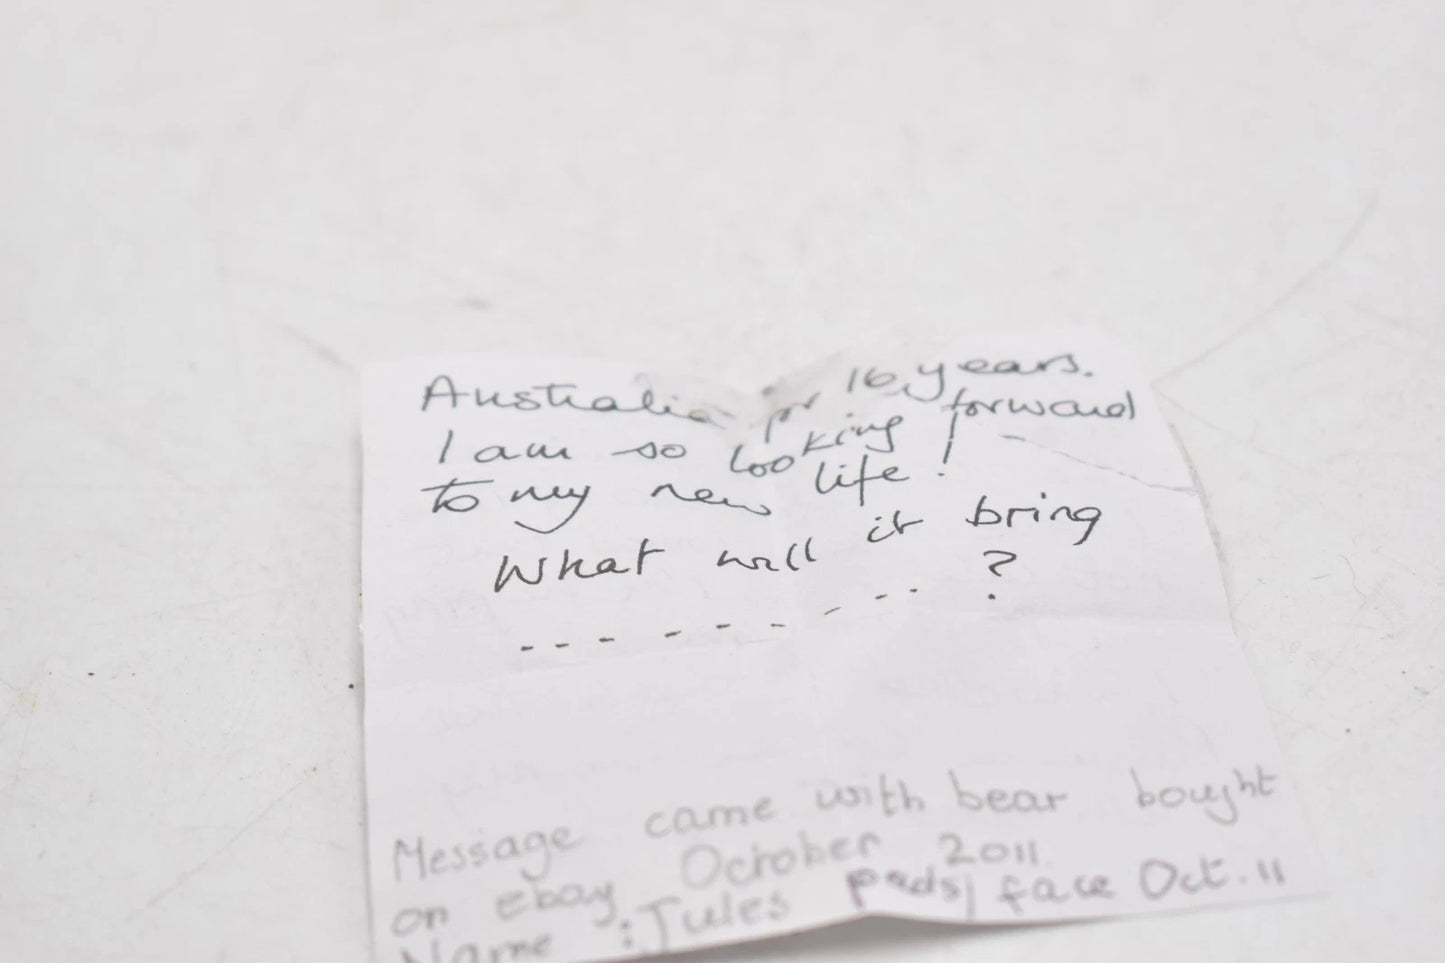 Australia for 16 years.
I am so looking forward
to my new life!
What will it bring
--- --- - -- ?
Message came with bear bought
on ebay October 2011.
Name : Jules pads/face Oct. 11